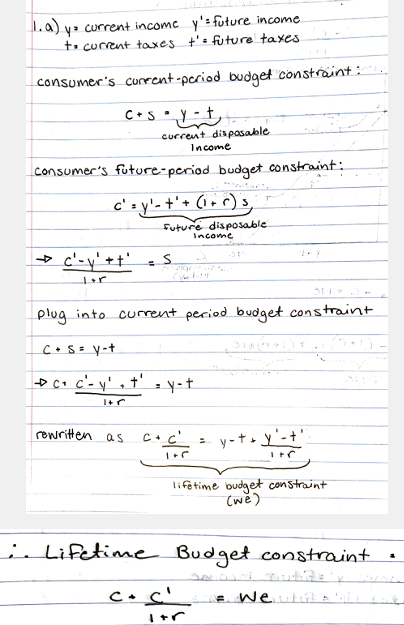 1. a) y = current income y' = future income
t = current taxes t' = future taxes
consumer's current-period budget constraint:
c + s = y - t
current disposable
Income
consumer's future-period budget constraint:
c' = y' - t' + (1 + r) s
future disposable
income
→ c' - y' + t' = s
1 + r
plug into current period budget constraint
c + s = y - t
→ c + c' - y' + t' = y - t
1 + r
rewritten as c + c' = y - t + y' - t'
1 + r 1 + r
lifetime budget constraint
(we)
∴ Lifetime Budget constraint =
c + c' = we
1 + r